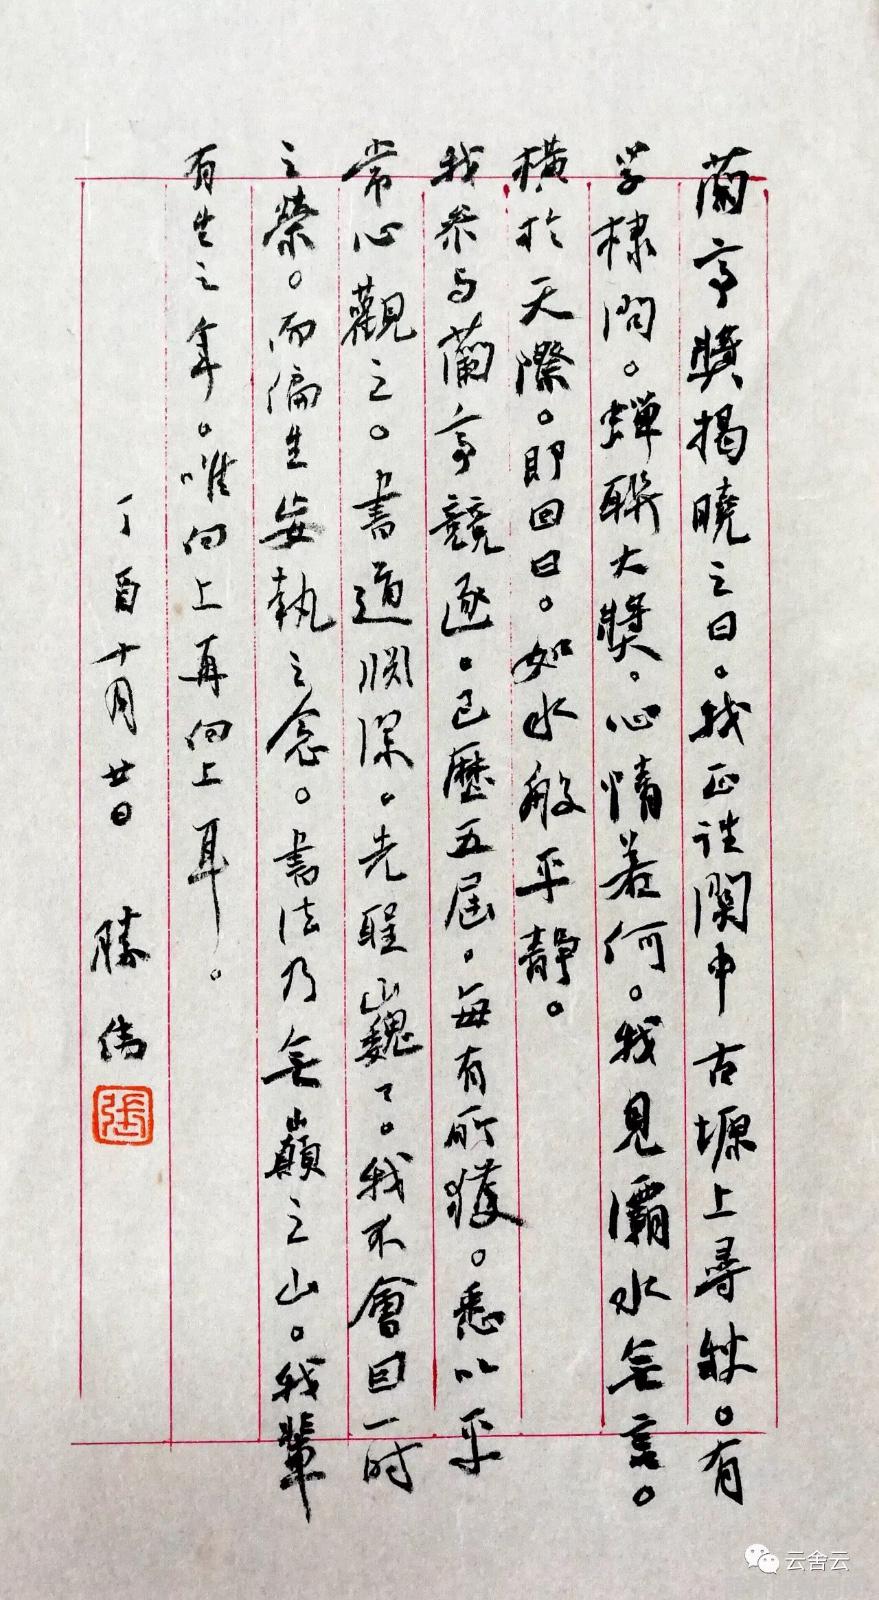 蘭亭獎揭曉之日。我正往関中古塬上尋秋。有
学棣问。蝉聯大獎。心情若何。我見灞水無言。
橫於天際。即回曰。如水般平静。
我参与蘭亭競逐。已歷五届。每有所獲。悉以平
常心觀之。書道淵深。先聖巍巍。我不會因一时
之榮。而偏生妄執之念。書法乃無巔之山。我輩
有生之年。唯向上再向上耳。
丁酉十月廿日 勝偉
張
云舍云